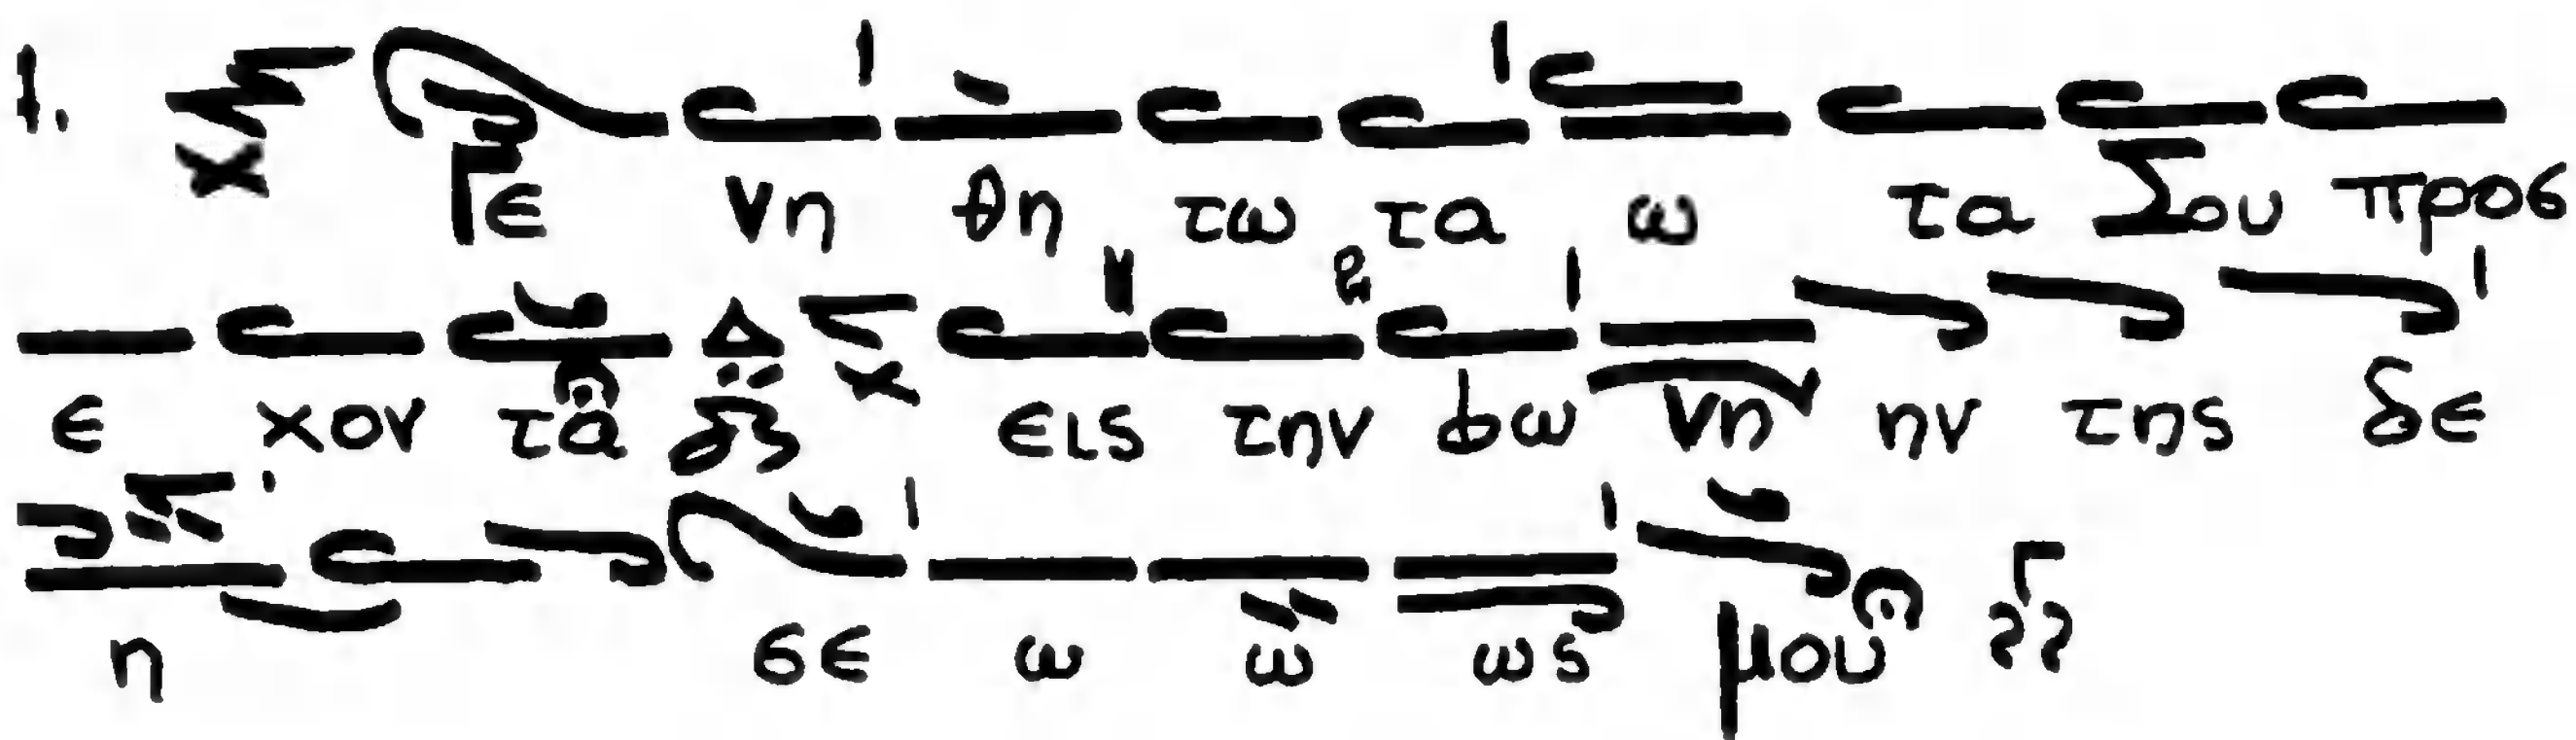 1. χ Γε νη θη τω τα ω τα Σου προσ
ε χον τα Δ δι χ εις την φω νη ην της δε
η σε ω ω ως μου